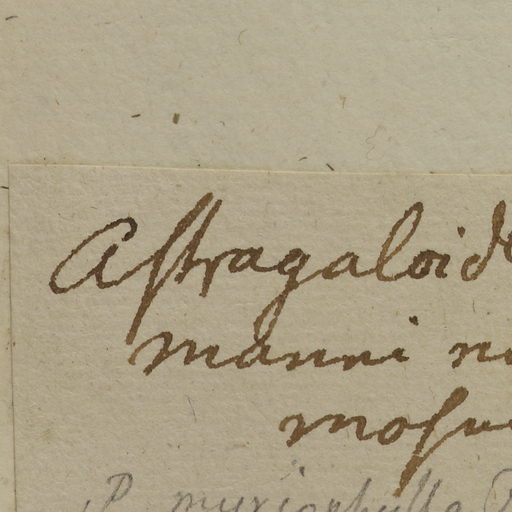 Astragaloide
manni
P. myriophylla